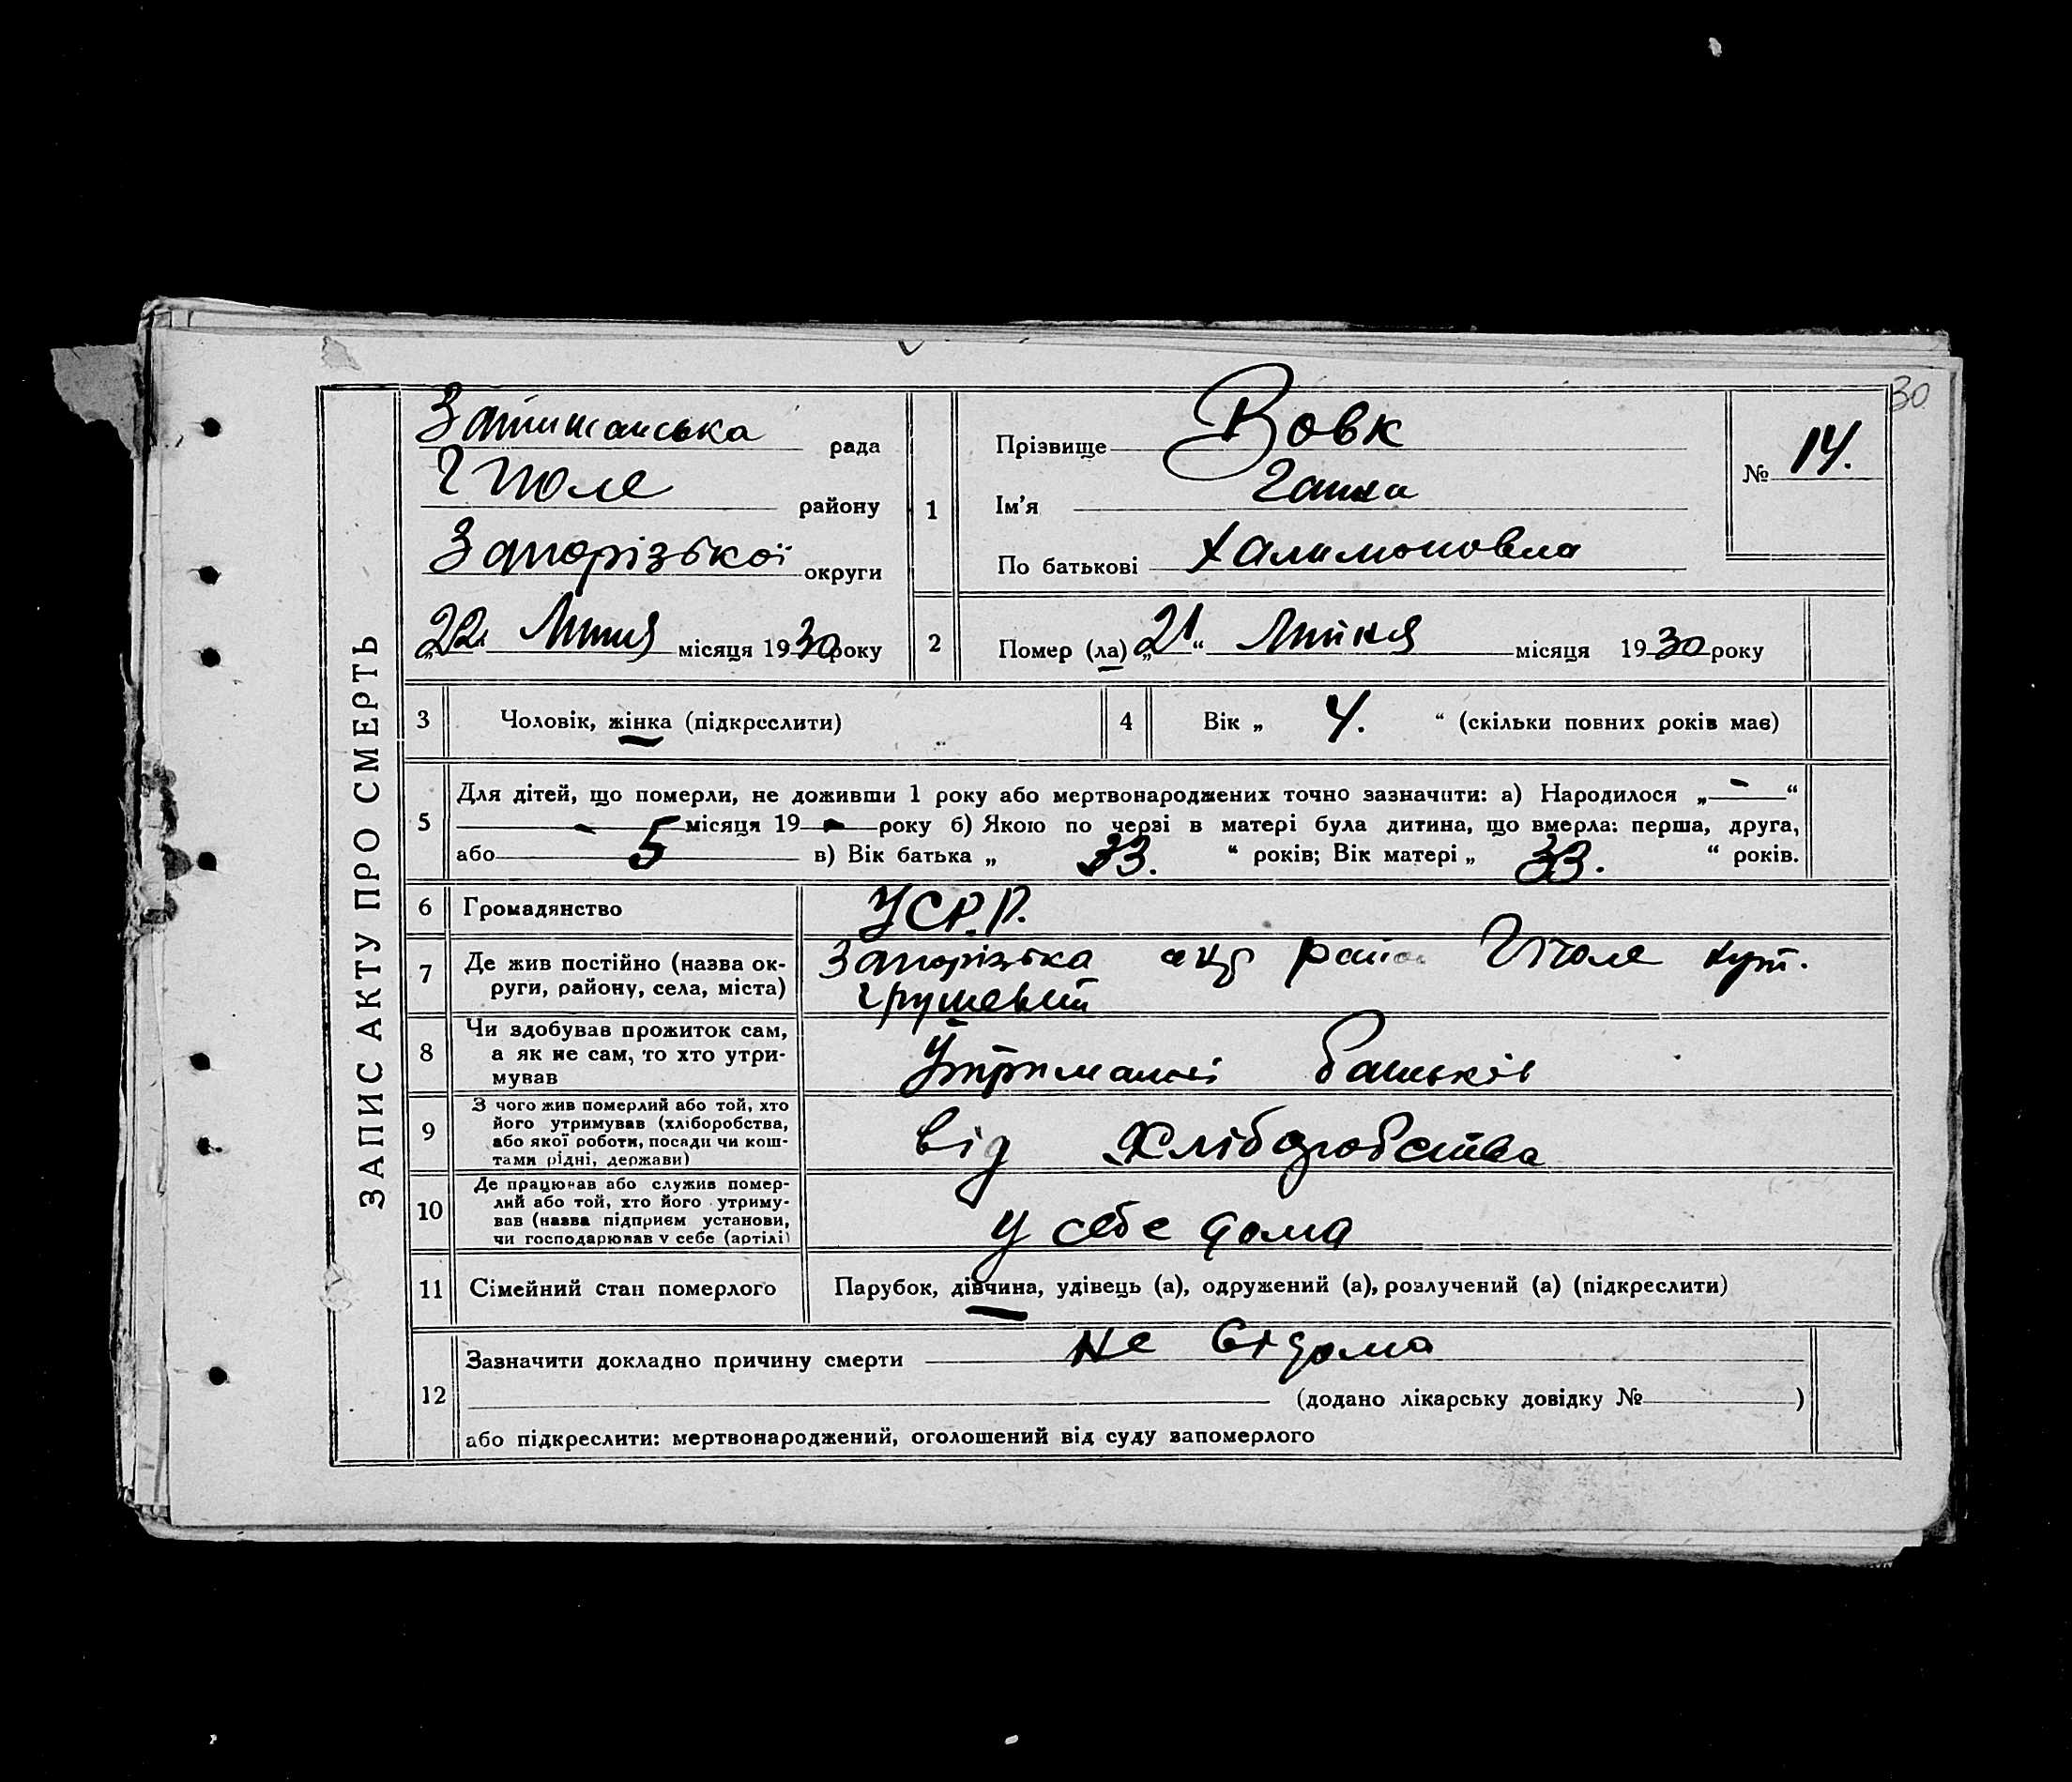 30
ЗАПИС АКТУ ПРО СМЕРТЬ
Затишанська рада
Гполе району
Запорізької округи
„22 Липня місяця 1930 року
1
Прізвище Вовк
Ім'я Ганна
По батькові Халимоновна
№ 14.
2
Помер (ла) „21“ Липня місяця 1930 року
3 Чоловік, жінка (підкреслити)
4 Вік „ 4. “ (скільки повних років має)
5 Для дітей, що померли, не доживши 1 року або мертвонароджених точно зазначити: а) Народилося „ - “
- місяця 19 - року б) Якою по черзі в матері була дитина, що вмерла: перша, друга,
або 5 в) Вік батька „ 33. “ років; Вік матері „ 33. “ років.
6 Громадянство УСР.Р.
7 Де жив постійно (назва ок-
руги, району, села, міста)
Запорізька окр район Гполе хут.
Грушевий
8 Чи здобував прожиток сам,
а як не сам, то хто утри-
мував
Утриманні батьків
9 З чого жив померлий або той, хто
його утримував (хліборобства,
або якої роботи, посади чи кош-
тами рідні, держави)
від Хліборобства
10 Де працював або служив помер-
лий або той, хто його утриму-
вав (назва підприєм установи,
чи господарював у себе (артілі)
у себе дома
11 Сімейний стан померлого Парубок, дівчина, удівець (а), одружений (а), розлучений (а) (підкреслити)
12 Зазначити докладно причину смерти не відома
(додано лікарську довідку № )
або підкреслити: мертвонароджений, оголошений від суду запомерлого